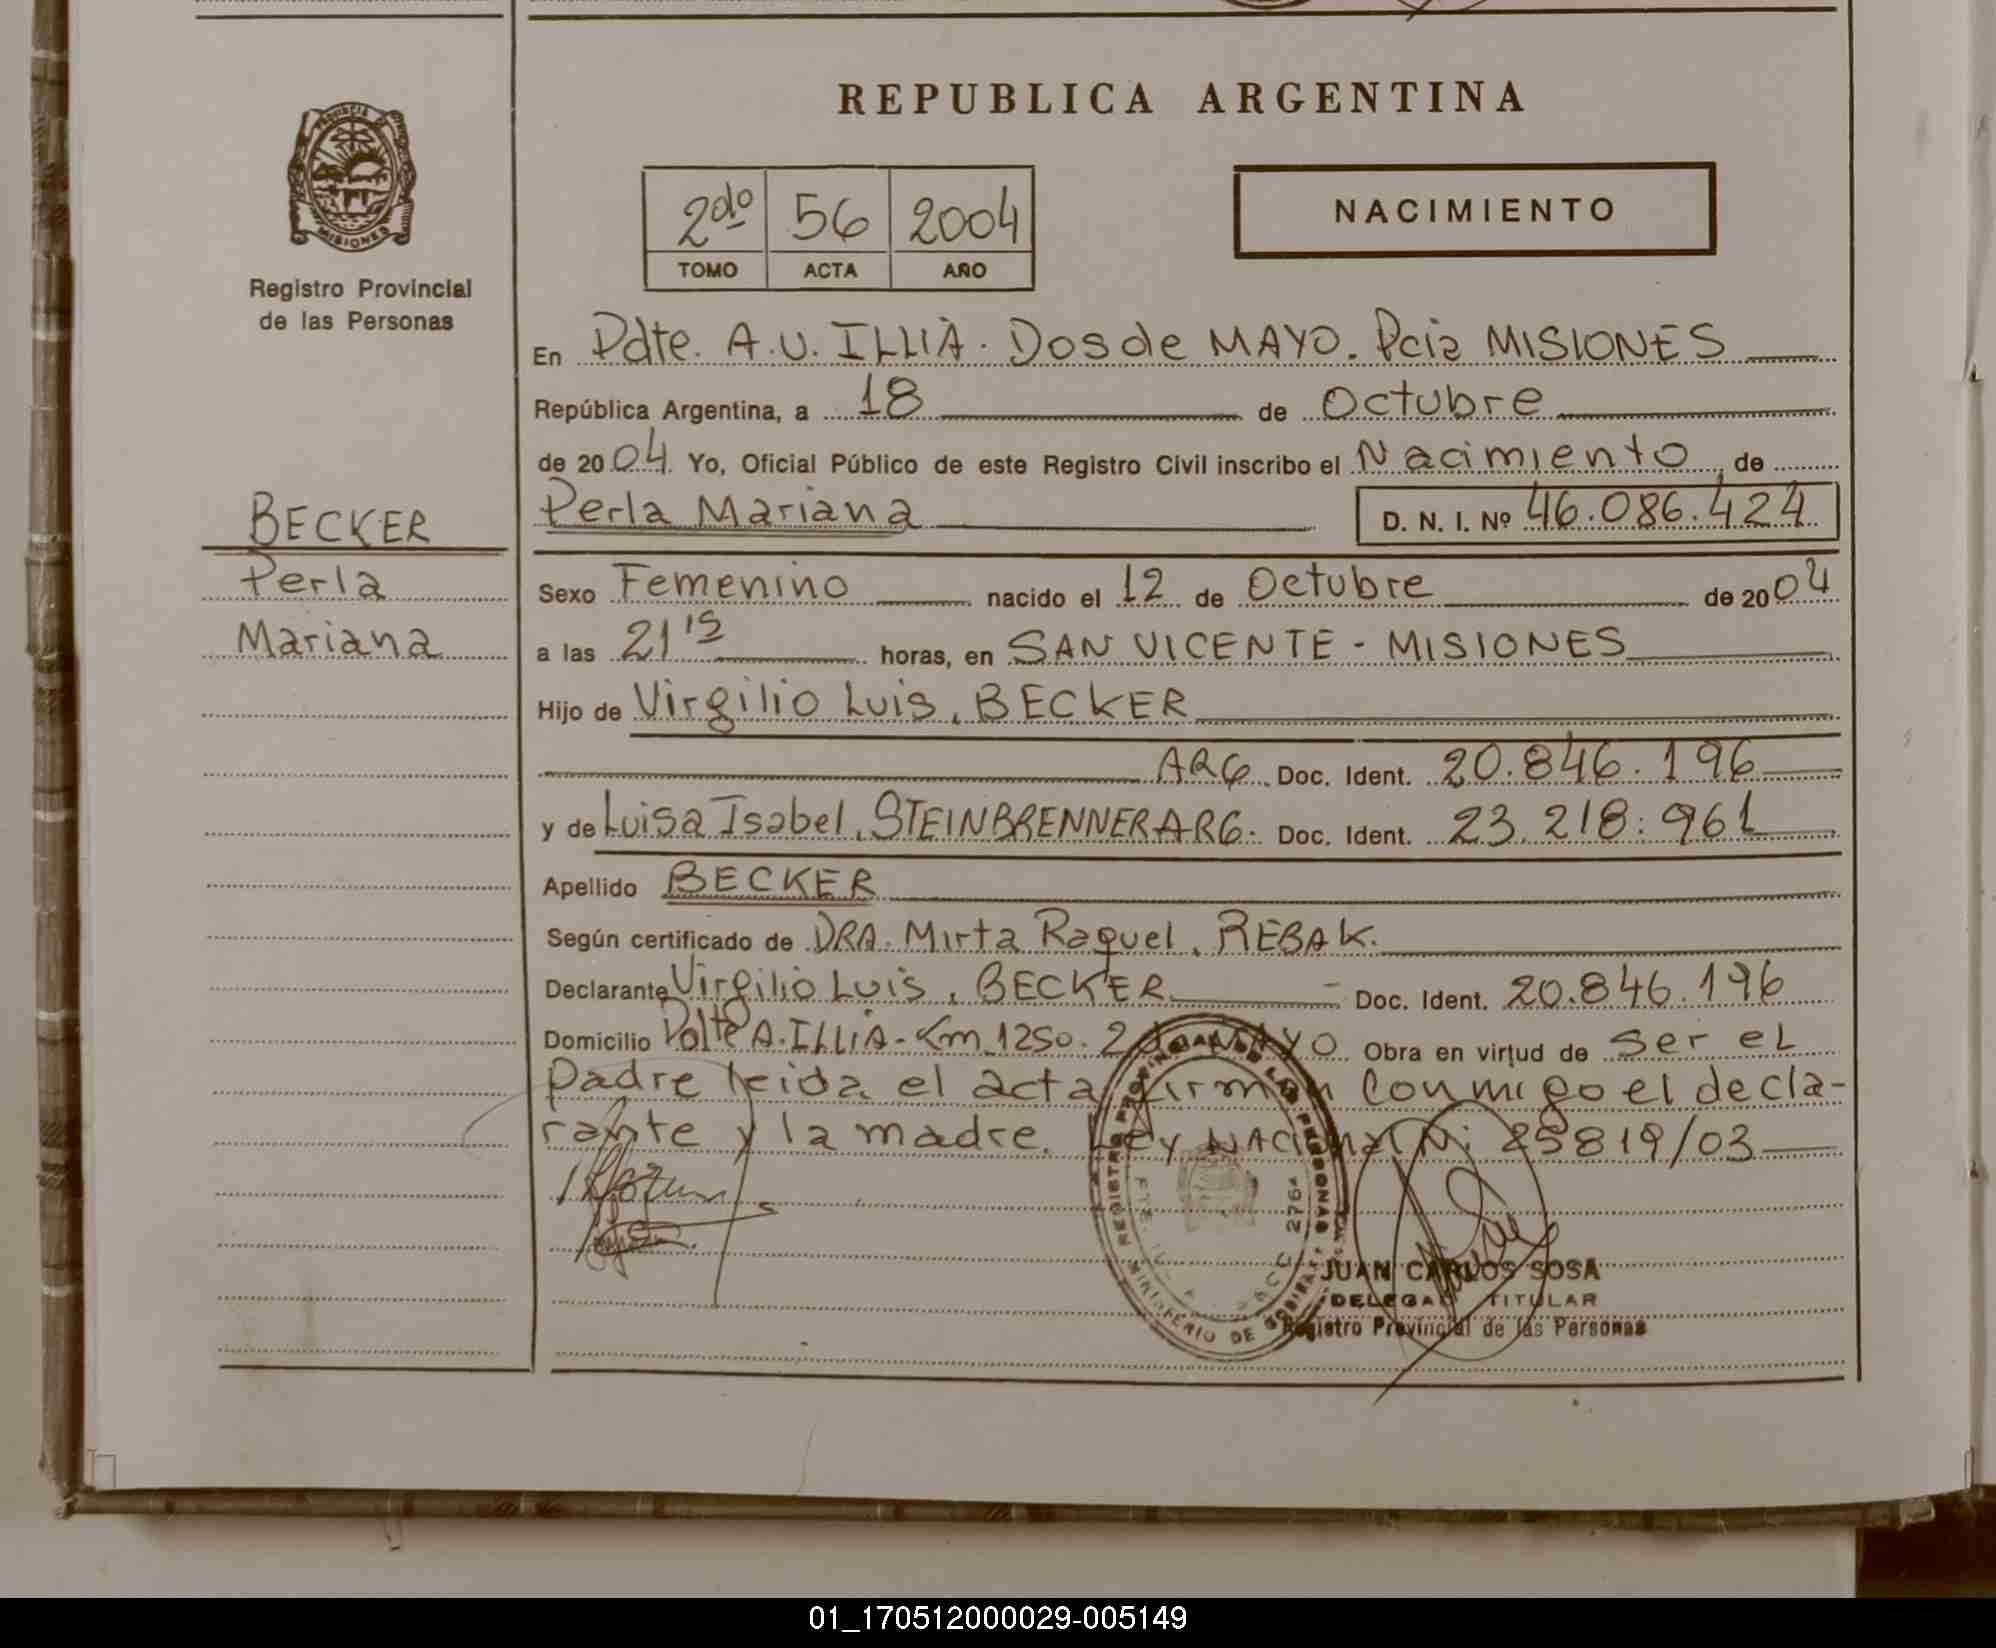 REPUBLICA ARGENTINA
PROVINCIA DE
MISIONES
Registro Provincial
de las Personas
2do 56 2004
TOMO ACTA AÑO
NACIMIENTO
En Pdte. A.U. ILLIA. Dos de MAYO. Pcia MISIONES
República Argentina, a 18 de Octubre
de 2004. Yo, Oficial Público de este Registro Civil inscribo el Nacimiento, de
Perla Mariana D. N. I. Nº 46.086.424
BECKER
Perla
Mariana
Sexo Femenino nacido el 12 de Octubre de 2004
a las 21 15 horas, en SAN VICENTE - MISIONES
Hijo de Virgilio Luis, BECKER
ARG. Doc. Ident. 20.846.196
y de Luisa Isabel, STEINBRENNER ARG. Doc. Ident. 23.218.961
Apellido BECKER
Según certificado de DRA. Mirta Raquel, REBAK.
Declarante Virgilio Luis, BECKER Doc. Ident. 20.846.196
Domicilio Pdte A. ILLIA - Km 1250. 2 de MAYO Obra en virtud de ser el
padre leida el acta firman conmigo el decla-
rante y la madre. Ley NACional N: 25819/03
REGISTRO PROVINCIAL DE LAS PERSONAS
MINISTERIO DE GOBIERNO
2764
JUAN CARLOS SOSA
DELEGADO TITULAR
Registro Provincial de las Personas
01_170512000029-005149